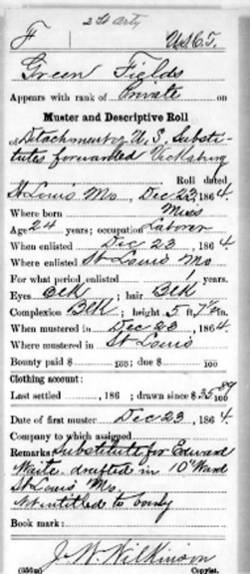 2 St Arty
F U.S.C.T.
Green Fields
Appears with rank of Private on
Muster and Descriptive Roll
of Detachment of U. S. Substi-
tutes forwarded Vicksburg
Roll dated
St Louis Mo, Dec 23, 1864.
Where born Miss
Age 24 years; occupation Laborer
When enlisted Dec 23, 1864
Where enlisted St Louis Mo
For what period enlisted 1 years.
Eyes Blk; hair Blk
Complexion Blk; height 5 ft. 7 in.
When mustered in Dec 23, 1864
Where mustered in St Louis
Bounty paid $ 100; due $ 100
Clothing account:
Last settled , 186 ; drawn since $ 35 89 100
Date of first muster Dec 23, 1864.
Company to which assigned
Remarks: Substitute for Edward
Waite. drafted in 10" Ward
St Louis Mo.
Not entitled to bounty
Book mark:
J. W. Wilkinson
Copyist.